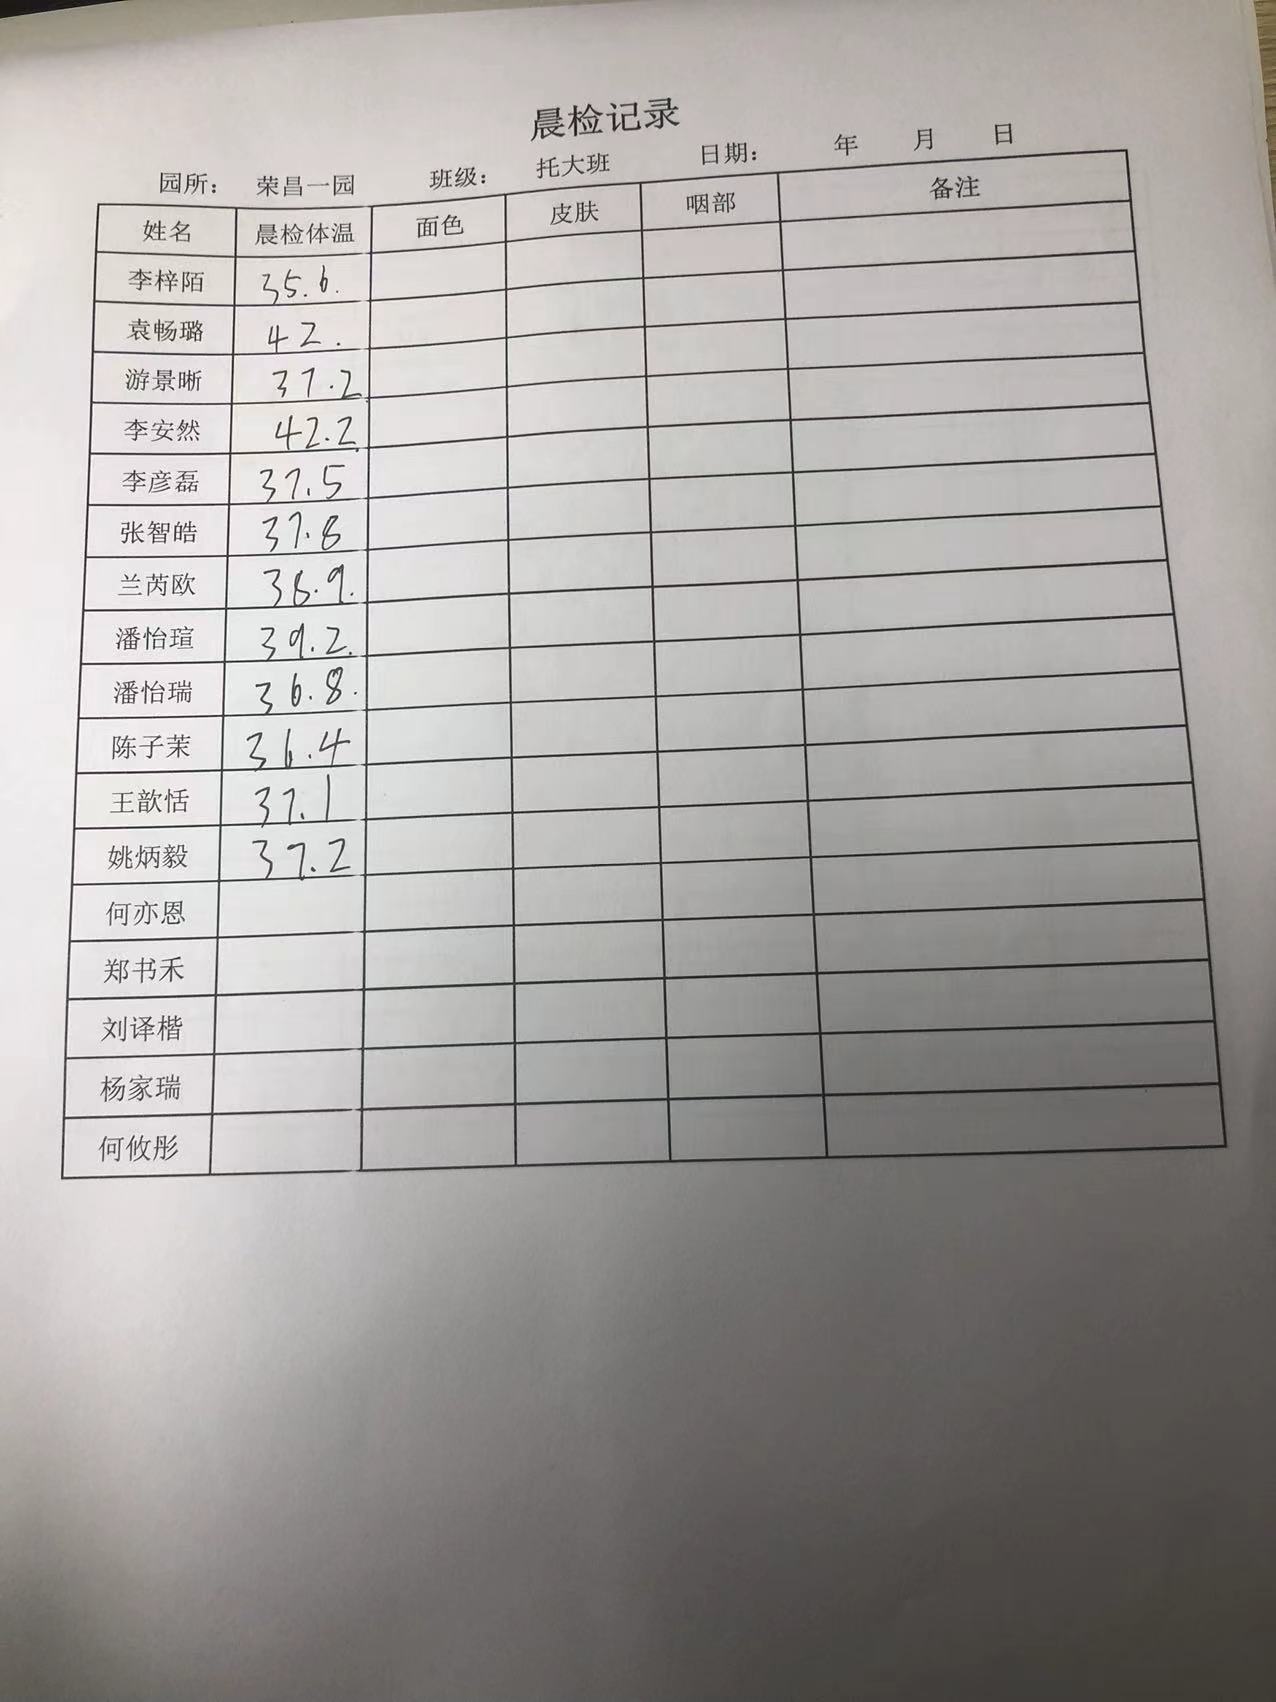 晨检记录
园所： 荣昌一园 班级： 托大班 日期： 年 月 日
姓名 晨检体温 面色 皮肤 咽部 备注
李梓陌 35.6.
袁畅璐 42.
游景晰 37.2
李安然 42.2
李彦磊 37.5
张智皓 37.8
兰芮欧 38.9.
潘怡瑄 39.2.
潘怡瑞 36.8.
陈子茉 36.4
王歆恬 37.1
姚炳毅 37.2
何亦恩
郑书禾
刘译楷
杨家瑞
何攸彤